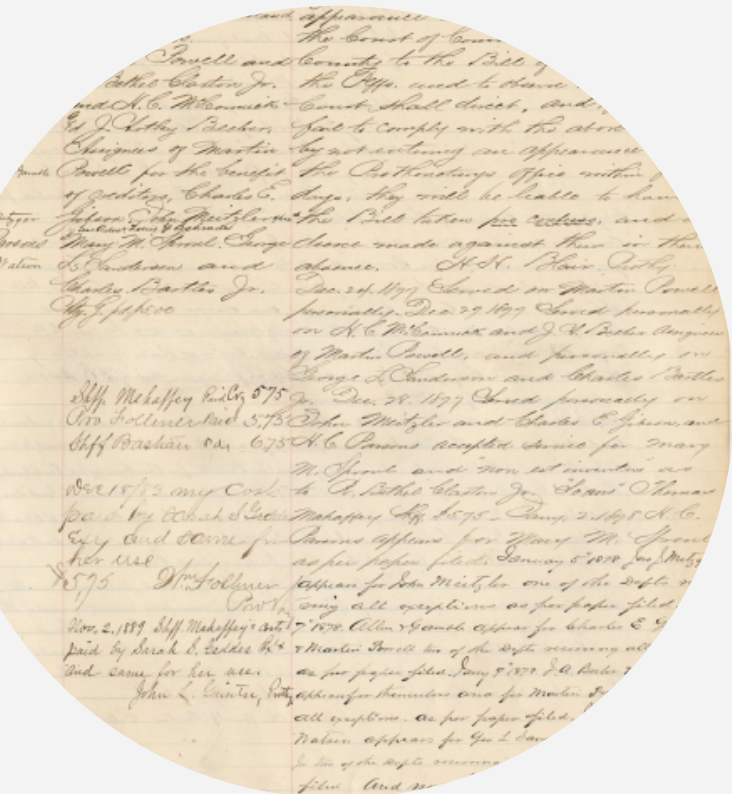 and
Powell and
Bethel Claxton Jr.
and H. C. McCormick
J. Artley Beeber,
Assignees of Martin
Powell for the benefit
of creditors, Charles E.
Gibson, John Meitzler
Mary M. Sproul, George
L. Sanderson and
Charles Bartles Jr.
Shff Mahaffey Paid 5,75
Pro Follmer Paid 5,75
Shff Bastian Pd, 6,75
Dec 18/83 my Costs
paid by Sarah S Geddes
and same for
her use
$5,75 Wm Follmer
Prot
Nov. 2, 1889 Shff Mahaffey's costs
paid by Sarah S. Geddes
and same for her use.
John L. Guinter, Proty
appearance
the Court of Com
County to the Bill of
the Plffs. and to observe
Court shall direct, and
fail to comply with the above
by not entering an appearance
the Prothonotarys Office within
days, they will be liable to have
the Bill taken pro confesso, and a
decree made against them in their
absence. H. H. Blair, Prothy
Dec. 24, 1877 Served on Martin Powell
personally. Dec. 27, 1877 Served personally
on H. C. McCormick and J. A. Beeber Assignees
of Martin Powell, and personally on
George L. Sanderson and Charles Bartles
Jr. Dec. 28, 1877 Served personally on
John Meitzler and Charles E. Gibson, and
H. C. Parsons accepted service for Mary
M. Sproul and "non est inventus" as
to R. Bethel Claxton Jr. Thomas
Mahaffey Shff. $5.75 - Jany. 2, 1878 H. C.
Parsons appears for Mary M. Sproul
as per paper filed. January 5" 1878 Jno J. Metzger
appears for John Meitzler one of the Defts
ing all exceptions as per paper filed
7" 1878. Allen & Gamble appear for Charles E G
& Martin Powell two of the Defts reserving all
as per paper filed. Jany 9" 1878. J. A. Beeber
appears for themselves and for Martin
all exceptions. as per paper filed.
Watson appears for Geo L San
Jr two of the Defts reserving
filed. And